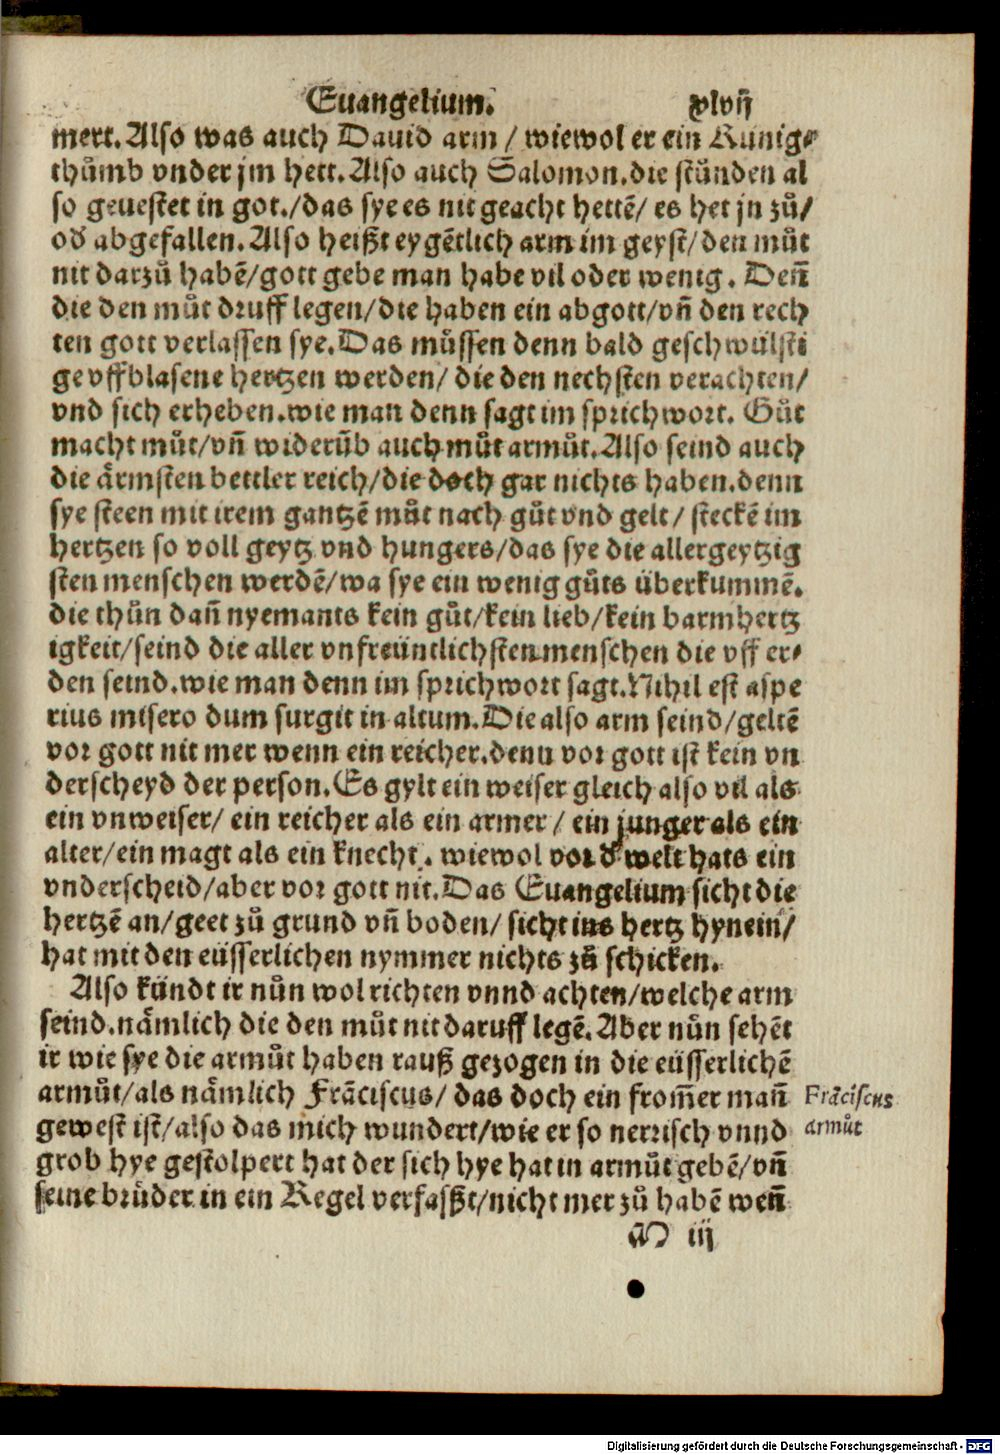 Euangelium. xlvij
mert. Also was auch Dauid arm / wiewol er ein Kunig⸗
thůmb vnder jm hett. Also auch Salomon. die stůnden al
so geuestet in got./das sye es nit geacht hettẽ/ es het jn zů/
oď abgefallen. Also heißt eygẽtlich arm im geyst/den můt
nit darzů habẽ/gott gebe man habe vil oder wenig. Deñ
die den můt druff legen/die haben ein abgott/vñ den rech
ten gott verlassen sye. Das můssen denn bald geschwülsti
ge vffblasene hertzen werden/ die den nechsten verachten/
vnd sich erheben. wie man denn sagt im sprichwort. Gůt
macht můt/vñ widerũb auch můt armůt. Also seind auch
die ärmsten bettler reich/die doch gar nichts haben. denn
sye steen mit irem gantzẽ můt nach gůt vnd gelt/ steckẽ im
hertzen so voll geytz vnd hungers/das sye die allergeytzig
sten menschen werdẽ/wa sye ein wenig gůts überkummẽ.
die thůn dañ nyemants kein gůt/kein lieb/kein barmhertz
igkeit/seind die aller vnfreüntlichsten menschen die vff er⸗
den seind. wie man denn im sprichwort sagt. Nihil est aspe
rius misero dum surgit in altum. Die also arm seind/geltẽ
vor gott nit mer wenn ein reicher. denn vor gott ist kein vn
derscheyd der person. Es gylt ein weiser gleich also vil als
ein vnweiser/ ein reicher als ein armer/ ein junger als ein
alter/ein magt als ein knecht. wiewol vor ď welt hats ein
vnderscheid/aber vor gott nit. Das Euangelium sicht die
hertzẽ an/geet zů grund vñ boden/ sicht ins hertz hynein/
hat mit den eüsserlichen nymmer nichts zů schicken.
Also kündt ir nůn wol richten vnnd achten/welche arm
seind. nämlich die den můt nit daruff legẽ. Aber nůn sehẽt
ir wie sye die armůt haben rauß gezogen in die eüsserlichẽ
armůt/als nämlich Frãciscus/ das doch ein from̃er mañ
gewest ist/also das mich wundert/wie er so nerrisch vnnd
grob hye gestolpert hat der sich hye hat in armůt gebẽ/vñ
seine brůder in ein Regel verfaßt/nicht mer zů habẽ weñ
Frãciscus
armůt
M iij
Digitalisierung gefördert durch die Deutsche Forschungsgemeinschaft - DFG